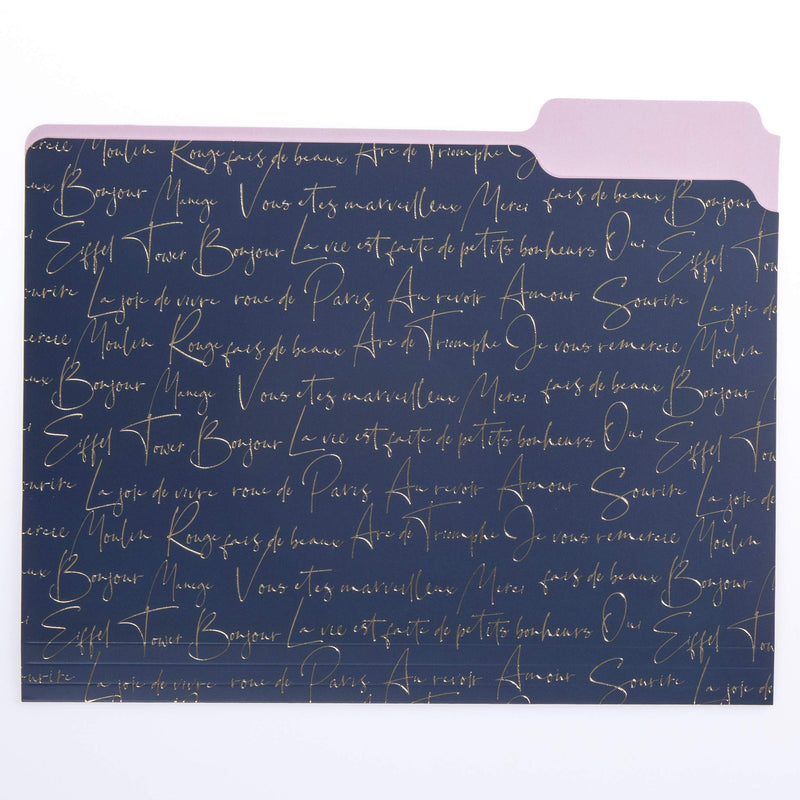 ercie Moulin Rouge fais de beaux Arc de Triomphe J
aux Bonjour Manege Vous etes marveilleux Merci fais de beaux Bonjour
i Eiffel Tower Bonjour La vie est faite de petits bonheurs Oui Eiffel Tow
ourire La joie de vivre roue de Paris Au revoir Amour Sourire La joie de
emercie Moulin Rouge fais de beaux Arc de Triomphe Je vous remercie Moulin
aux Bonjour Manege Vous etes marveilleux Merci fais de beaux Bonjour
i Eiffel Tower Bonjour La vie est faite de petits bonheurs Oui Eiffel Tow
ourire La joie de vivre roue de Paris Au revoir Amour Sourire La joie de
emercie Moulin Rouge fais de beaux Arc de Triomphe Je vous remercie Moulin
aux Bonjour Manege Vous etes marveilleux Merci fais de beaux Bonjour
i Eiffel Tower Bonjour La vie est faite de petits bonheurs Oui Eiffel Tow
ourire La joie de vivre roue de Paris Au revoir Amour Sourire La joie de